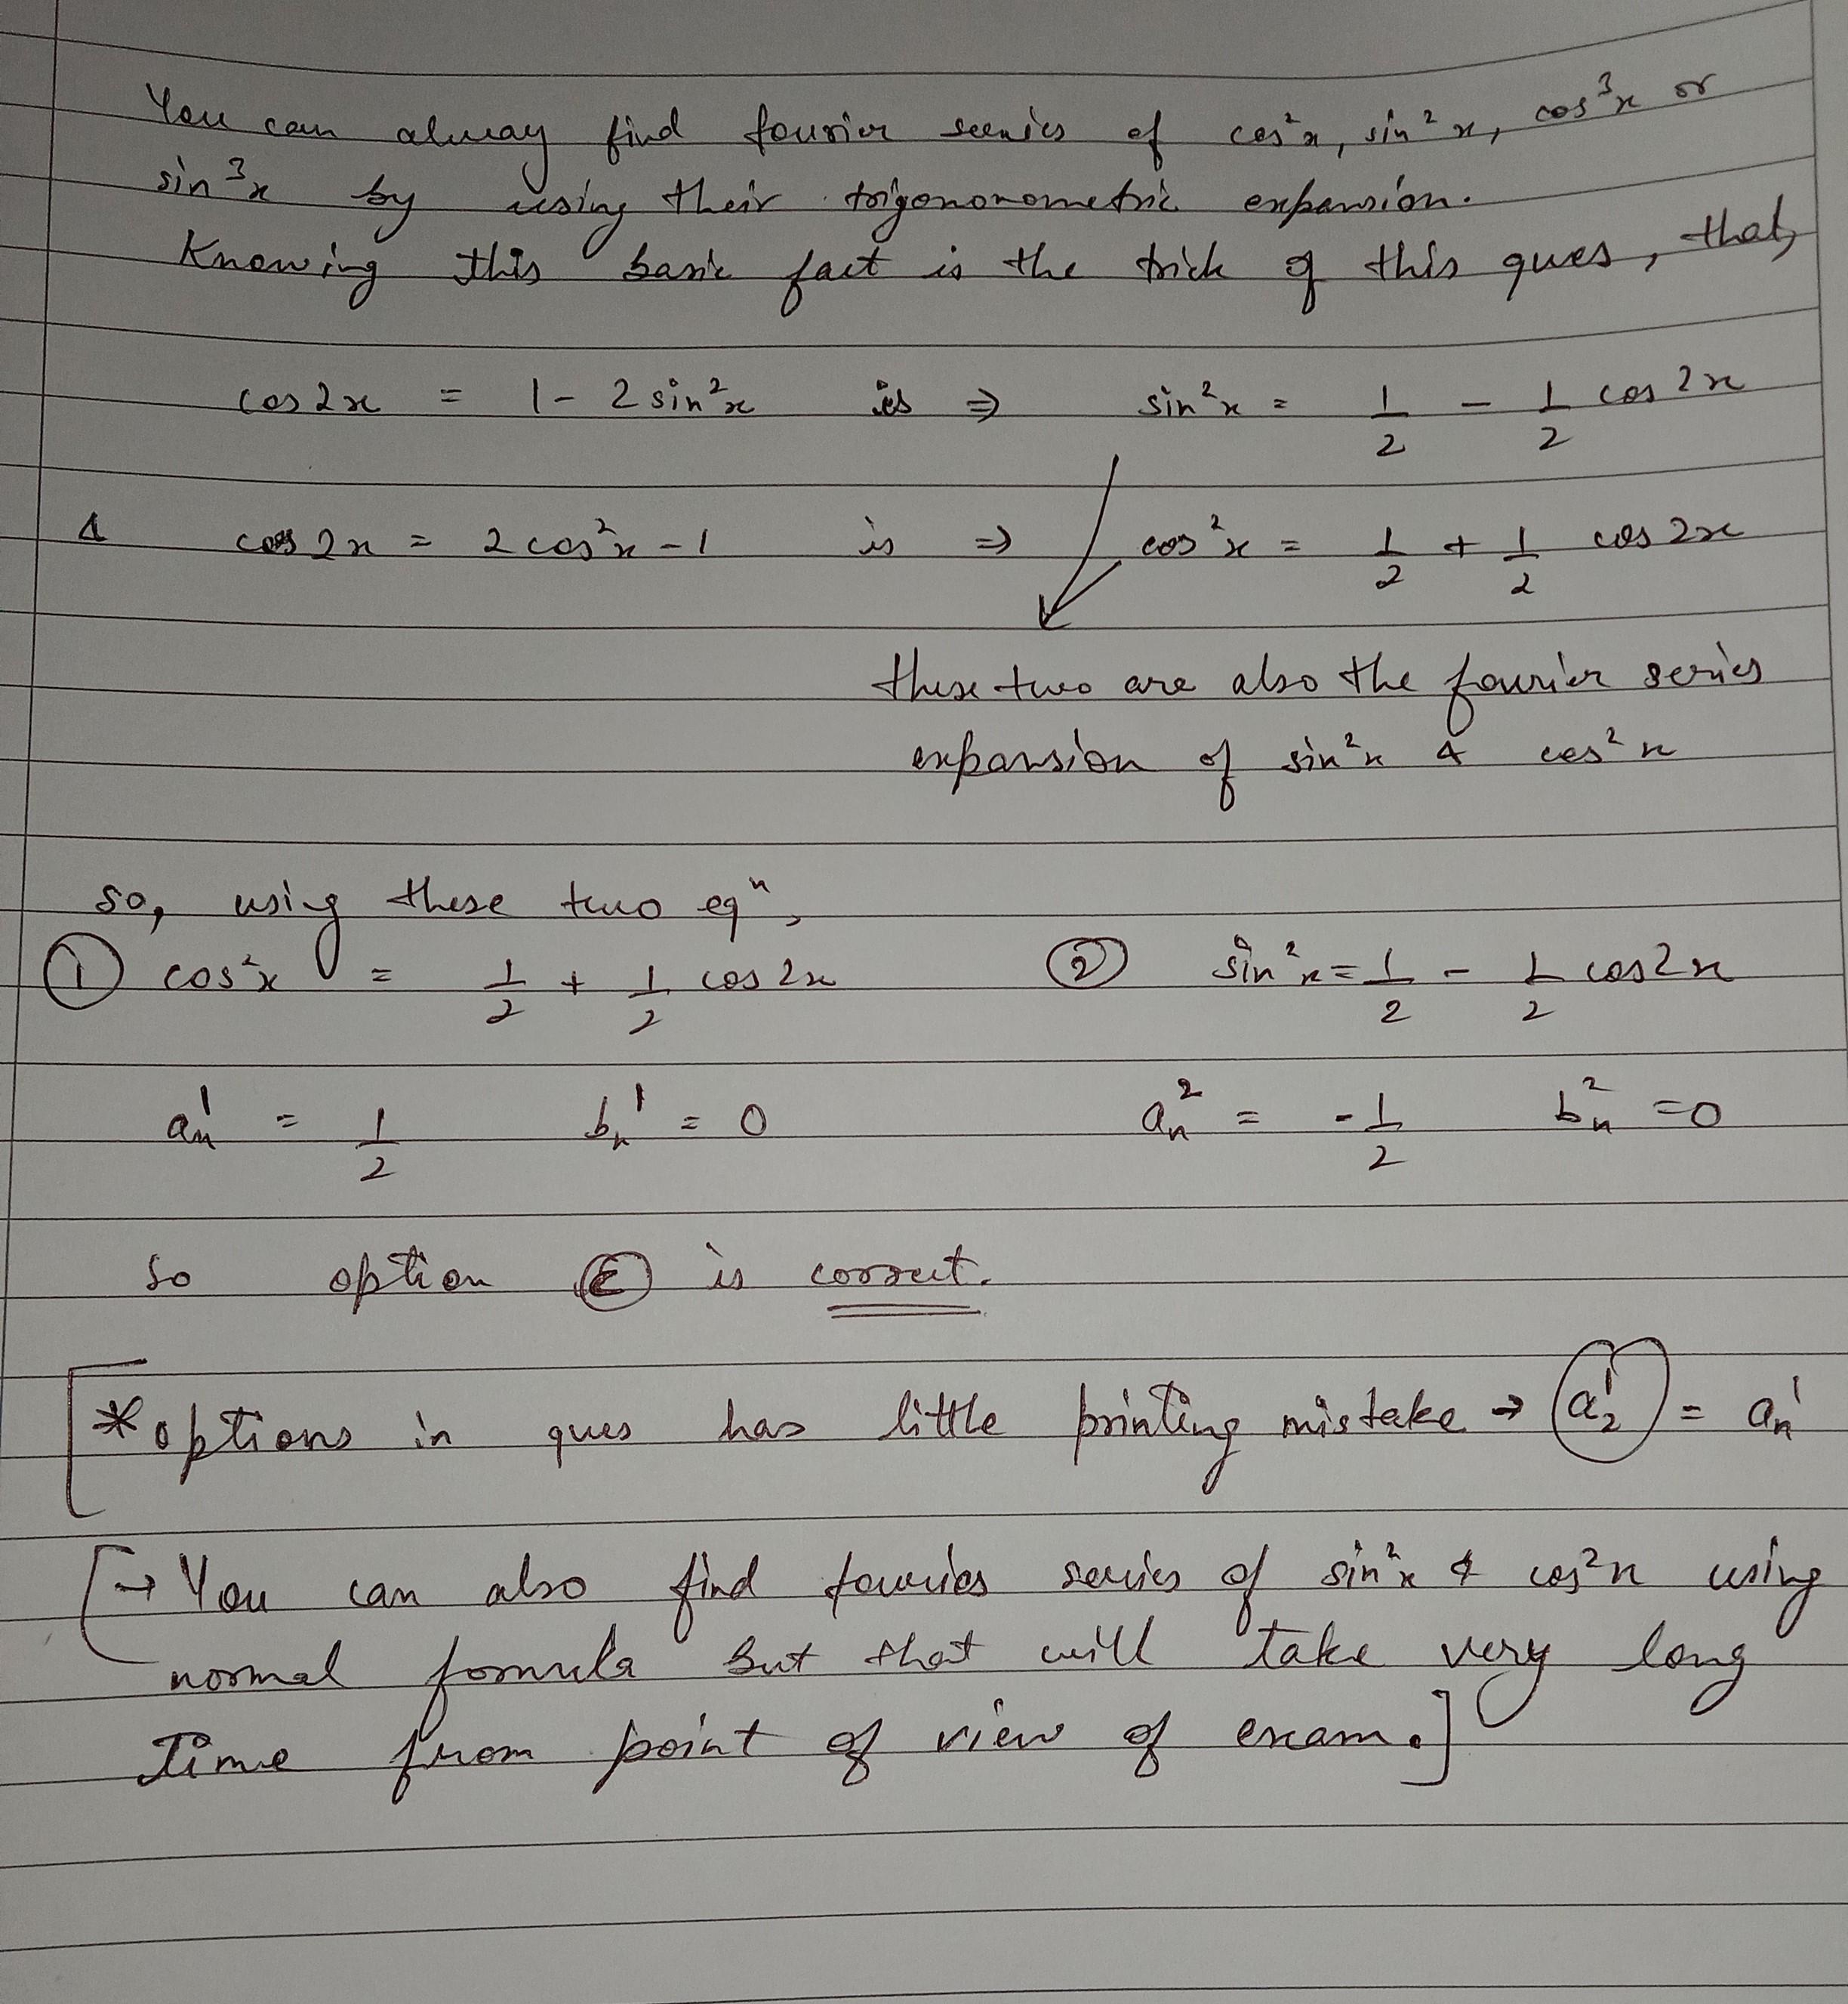 You can alway find fourier seenies of cos²x, sin²x, cos³x or
sin³x by using their trigonomometric expansion.
Knowing this basic fact is the trick of this ques, that,
cos2x = 1 - 2 sin²x is ⇒ sin²x = 1/2 - 1/2 cos 2x
& cos 2x = 2 cos²x - 1 is ⇒ cos²x = 1/2 + 1/2 cos 2x
these two are also the fourier series
expansion of sin²x & cos²x
so, using these two eqⁿ,
① cos²x = 1/2 + 1/2 cos 2x ② sin²x = 1/2 - 1/2 cos2x
aₙ¹ = 1/2 bₙ¹ = 0 aₙ² = -1/2 bₙ² = 0
So option Ⓒ is correct.
[*options in ques has little printing mistake → a₂¹ = aₙ¹
[→ You can also find fouries series of sin²x & cos²x using
normal formula but that will take very long
Time from point of view of exam.]